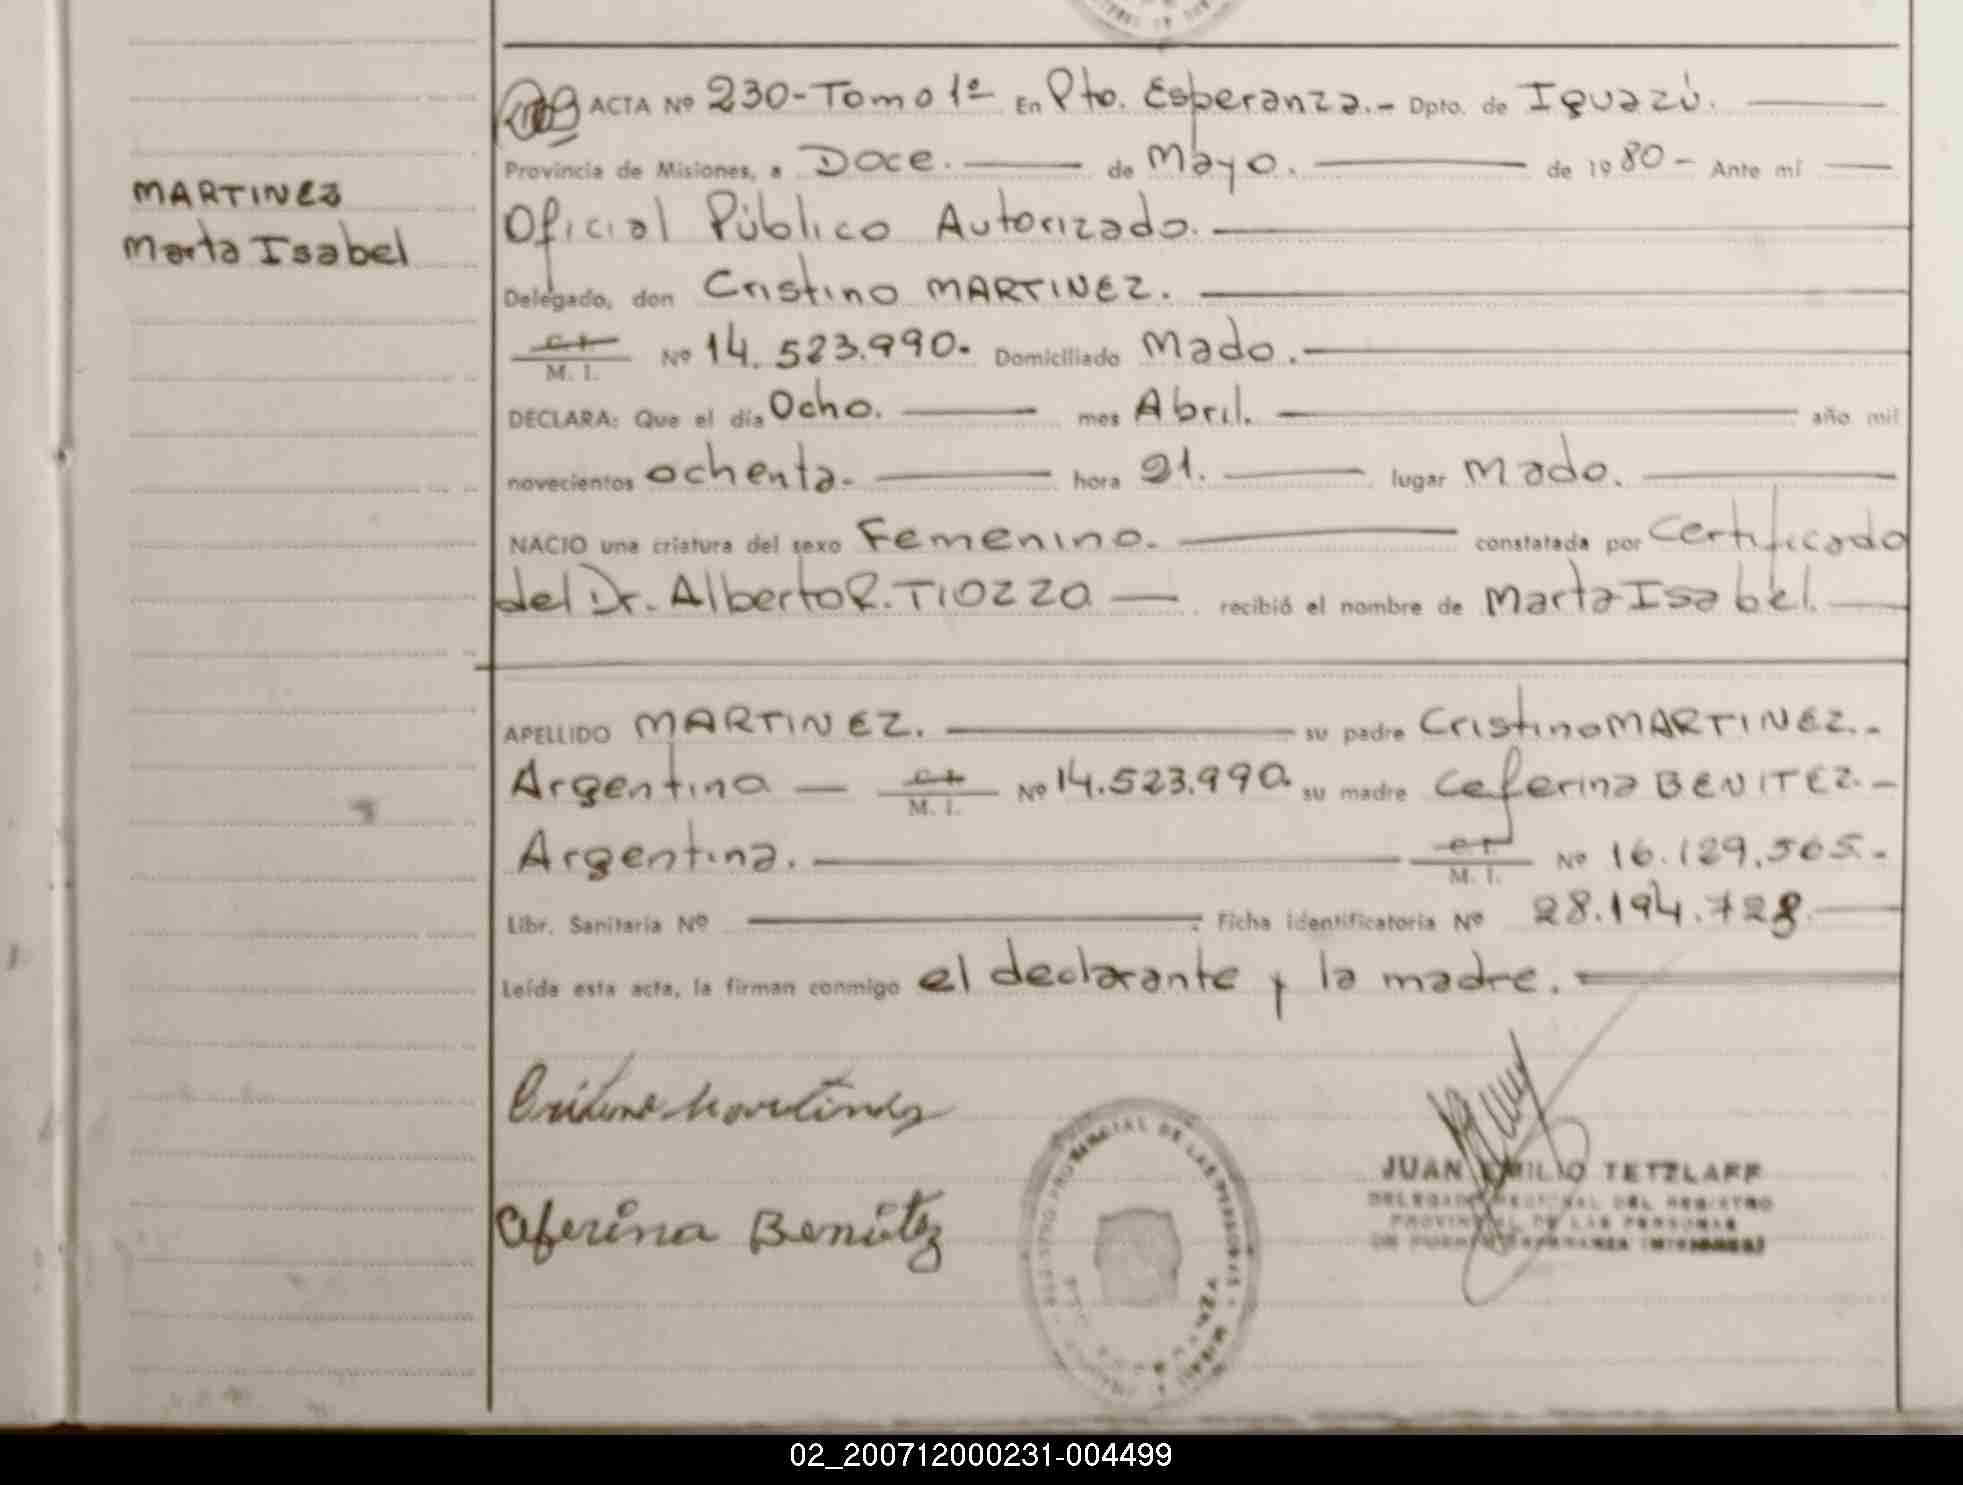 ACTA Nº 230-Tomo 1º En Pto. Esperanza.- Dpto. de Iguazú.
Provincia de Misiones, a Doce. de Mayo. de 1980- Ante mí
MARTINEZ
Oficial Público Autorizado.
Marta Isabel
Delegado, don Cristino MARTINEZ.
C. I.
M. I. Nº 14.523.990. Domiciliado Mado.
DECLARA: Que el día Ocho. mes Abril. año mil
novecientos ochenta. hora 21. lugar Mado.
NACIO una criatura del sexo Femenino. constatada por Certificado
del Dr. Alberto R. TIOZZO recibió el nombre de Marta Isabel.
APELLIDO MARTINEZ. su padre Cristino MARTINEZ.-
Argentino C. I.
M. I. Nº 14.523.990. su madre Ceferina BENITEZ.-
Argentina. C. I.
M. I. Nº 16.129.565.-
Libr. Sanitaria Nº Ficha identificatoria Nº 28.194.728
Leída esta acta, la firman conmigo el declarante y la madre.
Cristino Martinez
Ceferina Benitez
REGISTRO PROVINCIAL DE LAS PERSONAS
JUAN EMILIO TETZLAFF
DELEGADO REGIONAL DEL REGISTRO
PROVINCIAL DE LAS PERSONAS
DE PUERTO ESPERANZA (MISIONES)
02_200712000231-004499